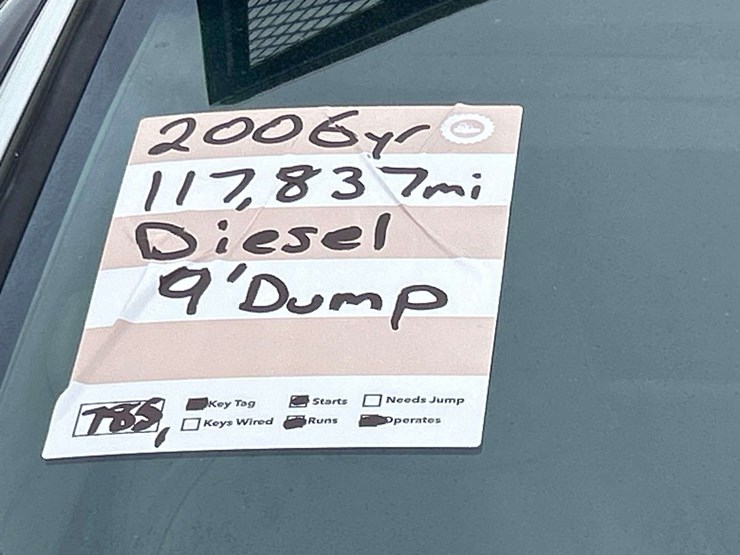 2006yr
117,837mi
Diesel
9'Dump
Key Tag Starts Needs Jump
T85, Keys Wired Runs Operates